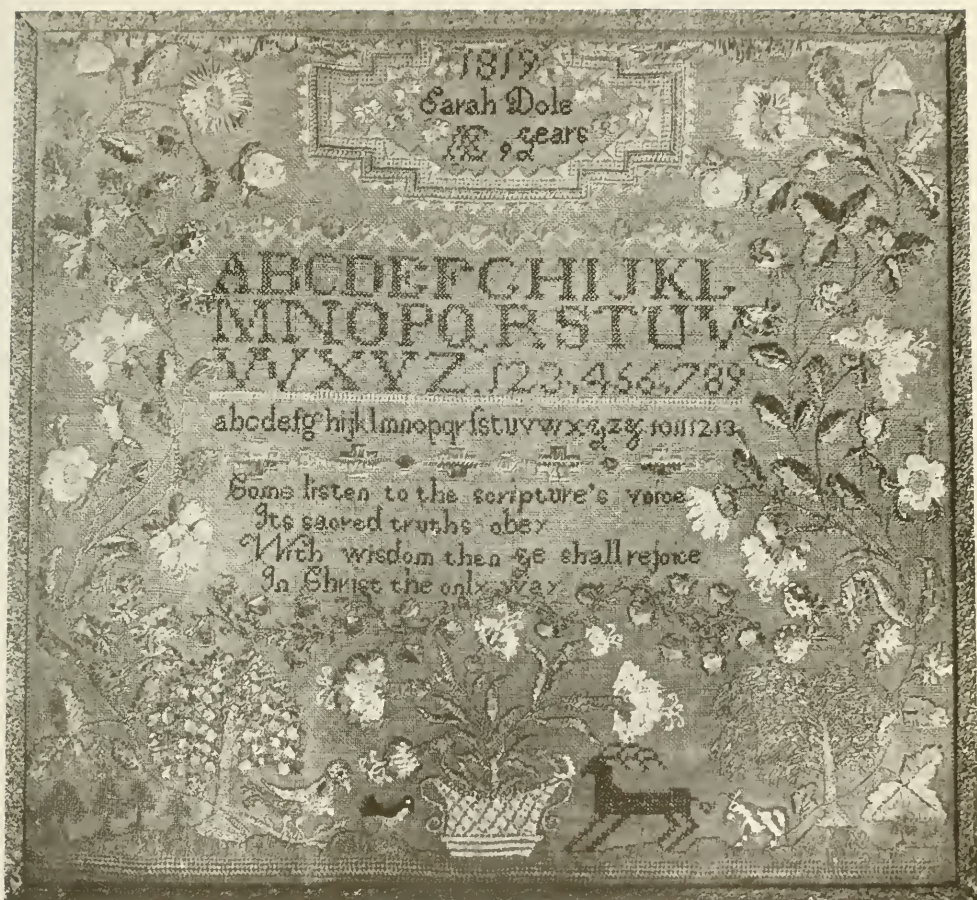 1819
Sarah Dole
Æ 9 years
ABCDEFGHIJKL
MNOPQRSTUV
WXYZ.123.456.789
abcdefghijklmnopqrſstuvwxyz&.10111213.
Come listen to the scripture's voice
Its sacred truths obey
With wisdom then ye shall rejoice
In Christ the only way